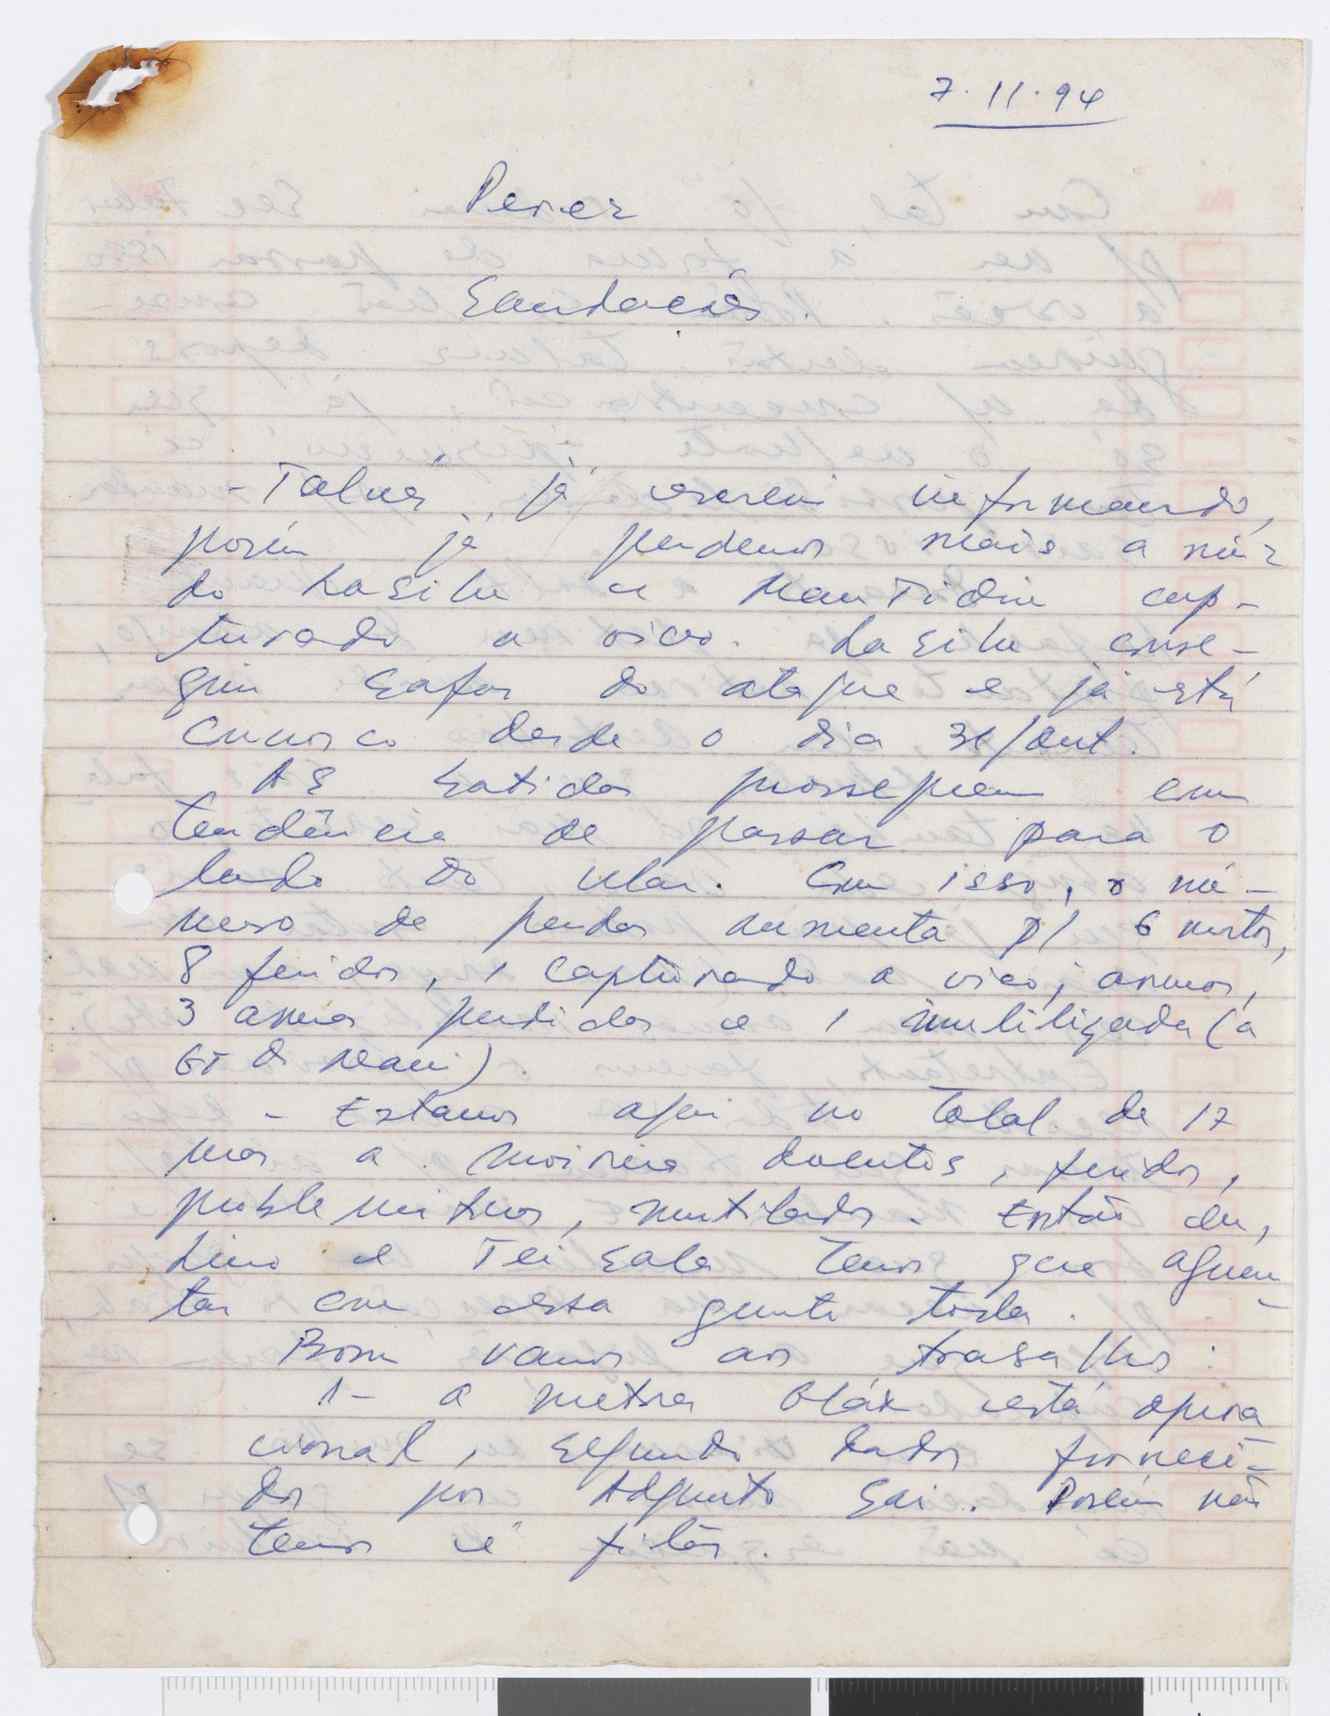 7.11.94
Perez
Saudações.
- Talvez já escrevi informando,
porém já perdemos mais a
do Lasiku e Mautidin cap-
turado a vivo. Lasiku conse-
guiu safar do ataque e já está
conosco desde o dia 31/out.
As batidas prosseguem com
tendência de passar para o
lado do Mar. Com isso, o nú-
mero de perdas aumenta p/ 6 mortos,
8 feridos, 1 capturado a vivo; armas,
3 armas perdidas e 1 inutilizada (a
G3 do Mau)
- Estamos aqui no total de 17
mas a maioria doentes, feridos,
problemáticos, mutilados. Então eu,
Lino e Tei Sala temos que aguen-
tar com essa gente toda.
Bom vamos aos trabalhos:
1- A metra está opera
cional, segundo dados forneci-
dos por Adjunto Sai. Porém não
temos é fitas.